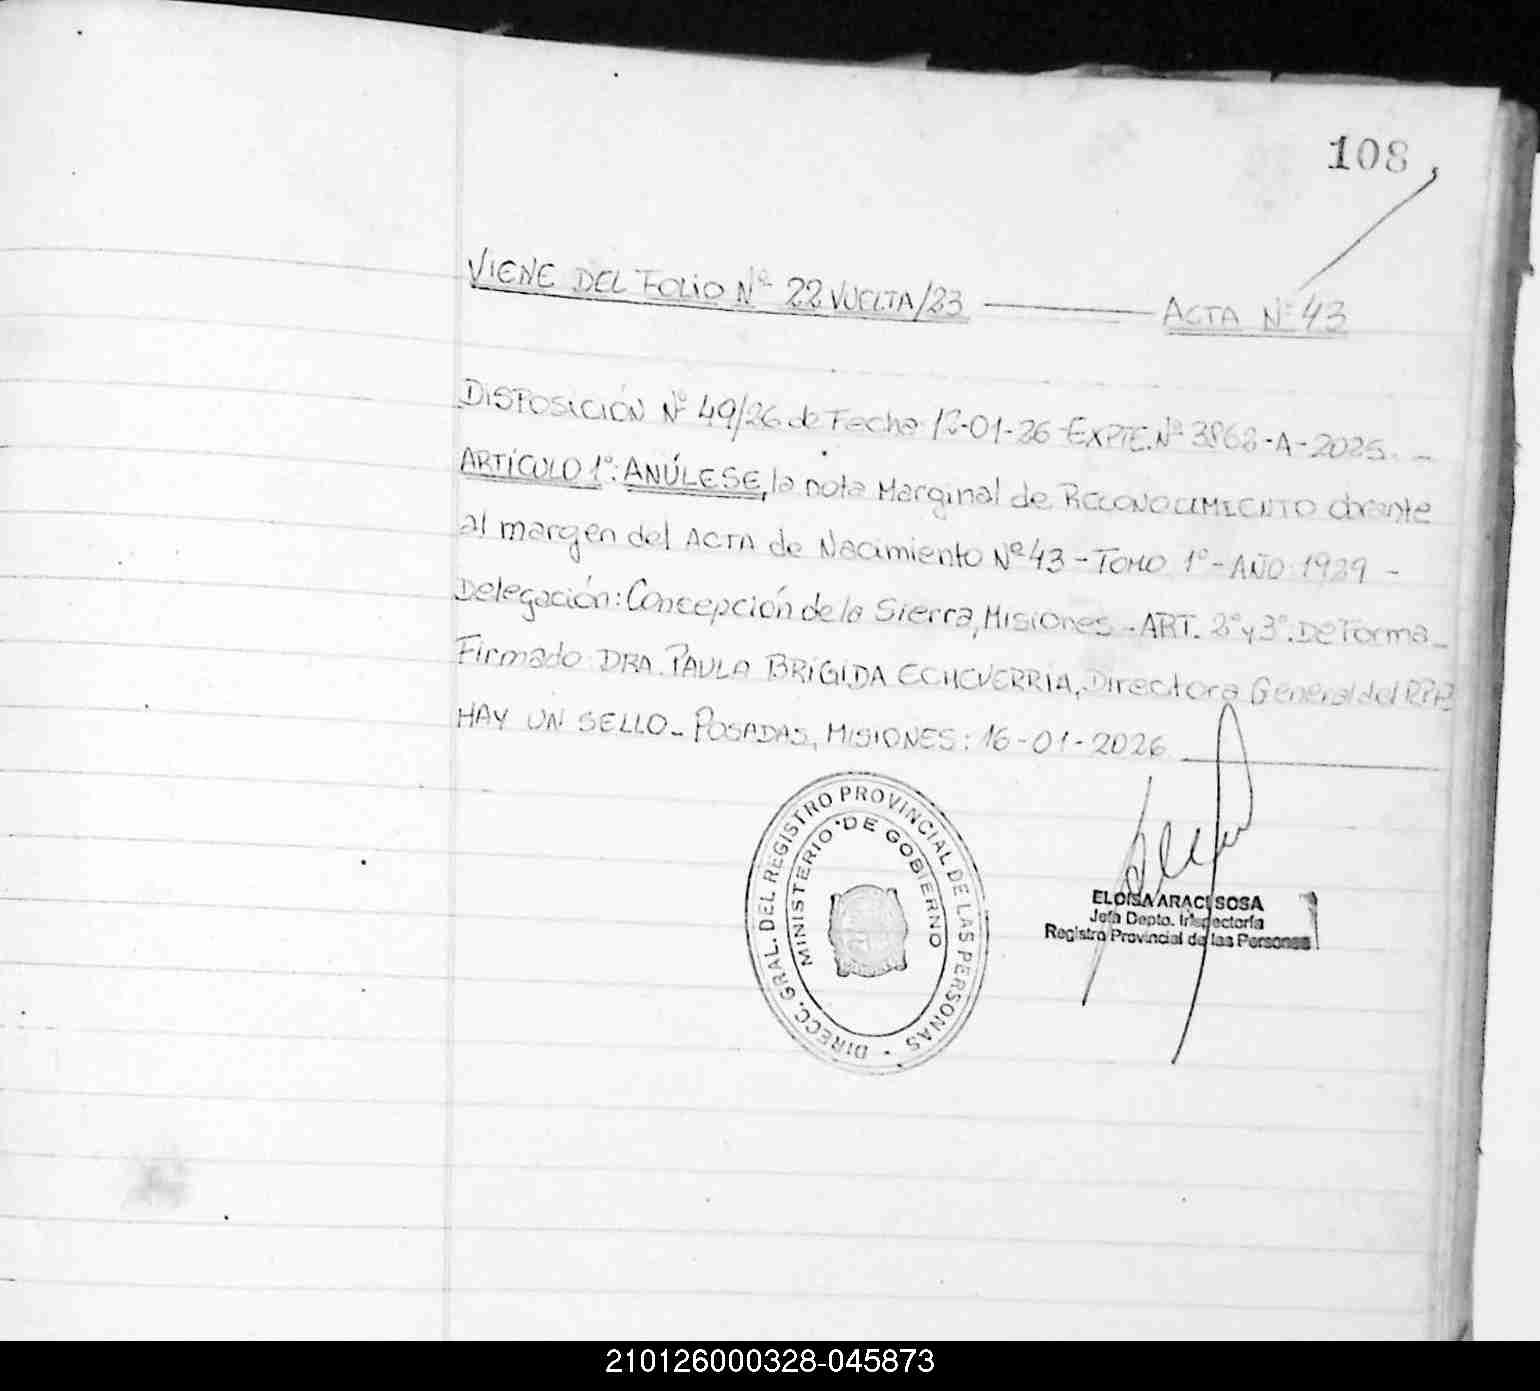 108
VIENE DEL FOLIO Nº 22 VUELTA/23 ACTA Nº 43
DISPOSICIÓN Nº 49/26 de Fecha 12-01-26 - EXPTE. Nº 3868-A-2025. -
ARTÍCULO 1º: ANÚLESE, la nota Marginal de RECONOCIMIENTO obrante
al margen del ACTA de Nacimiento Nº 43 - TOMO 1º - AÑO: 1939 -
Delegación: Concepción de la Sierra, Misiones - ART. 2º y 3º. De Forma -
Firmado: DRA. PAULA BRIGIDA ECHEVERRIA, Directora General del RPP
HAY UN SELLO - POSADAS, MISIONES: 16-01-2026
DIRECC. GRAL. DEL REGISTRO PROVINCIAL DE LAS PERSONAS
MINISTERIO DE GOBIERNO
ELOISA ARACI SOSA
Jefa Depto. Inspectoría
Registro Provincial de las Personas
210126000328-045873